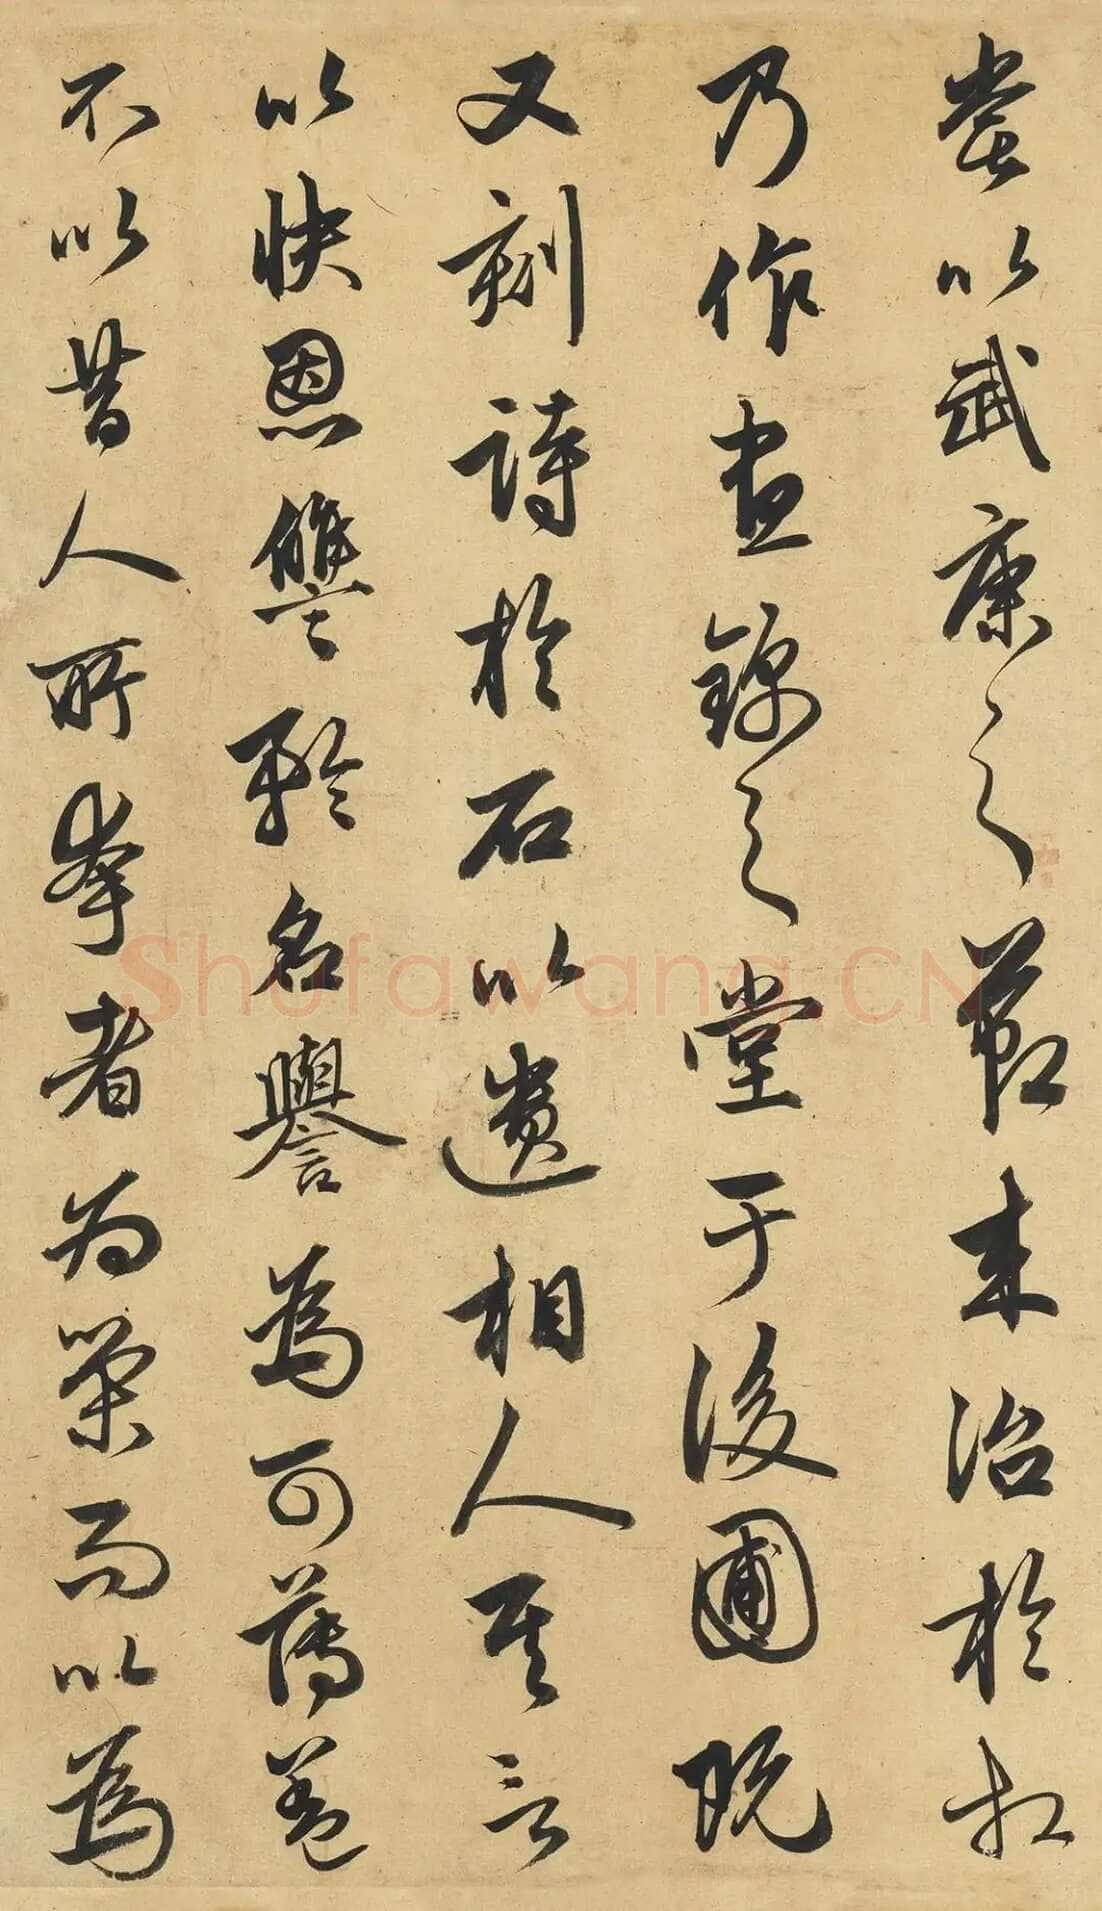 嘗以武康之節來治於相
乃作晝錦之堂于後圃既
又刻詩於石以遺相人其言
以快恩讐矜名譽為可薄蓋
不以昔人所夸者為榮而以為
Shufawang.CN